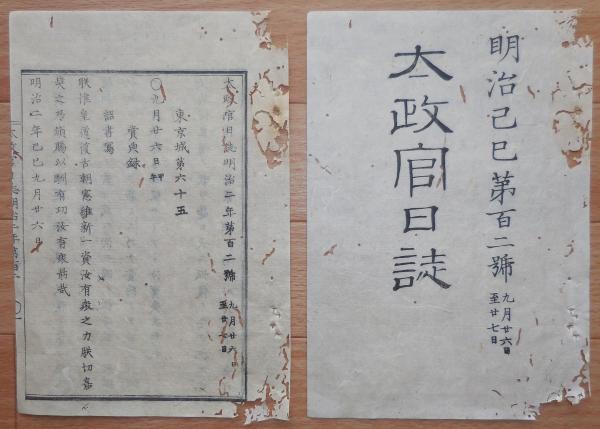 明治己巳第百二號
九月廿六日
至廿七日
太政官日誌
太政官日誌明治二年第百二號
九月廿六日
至廿七日
東京城第六十五
〇九月廿六日
賞典錄
詔書寫
朕惟皇道復古朝憲維新一資汝有衆之力朕切嘉
奬之乃頒賜以酬有功汝有衆勗哉
明治二年己巳九月廿六日